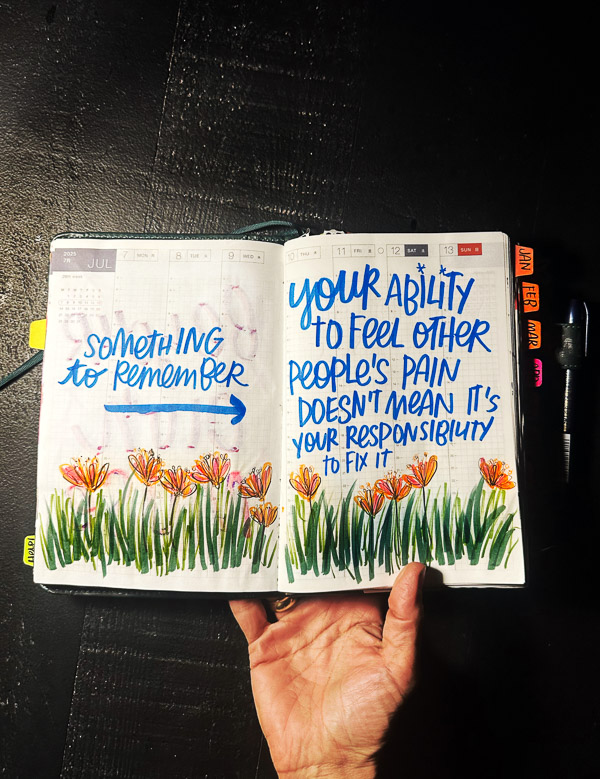 2025
7月
JUL
7 MON 月
8 TUE 火
9 WED 水
SOMETHING
to REMEMBER
10 THU 木
11 FRI 金
12 SAT 土
13 SUN 日
your ABILITY
to FEEL OTHER
PEOPLE'S PAIN
DOESN'T MEAN IT'S
YOUR RESPONSIBILITY
to FIX IT
JAN
FEB
MAR